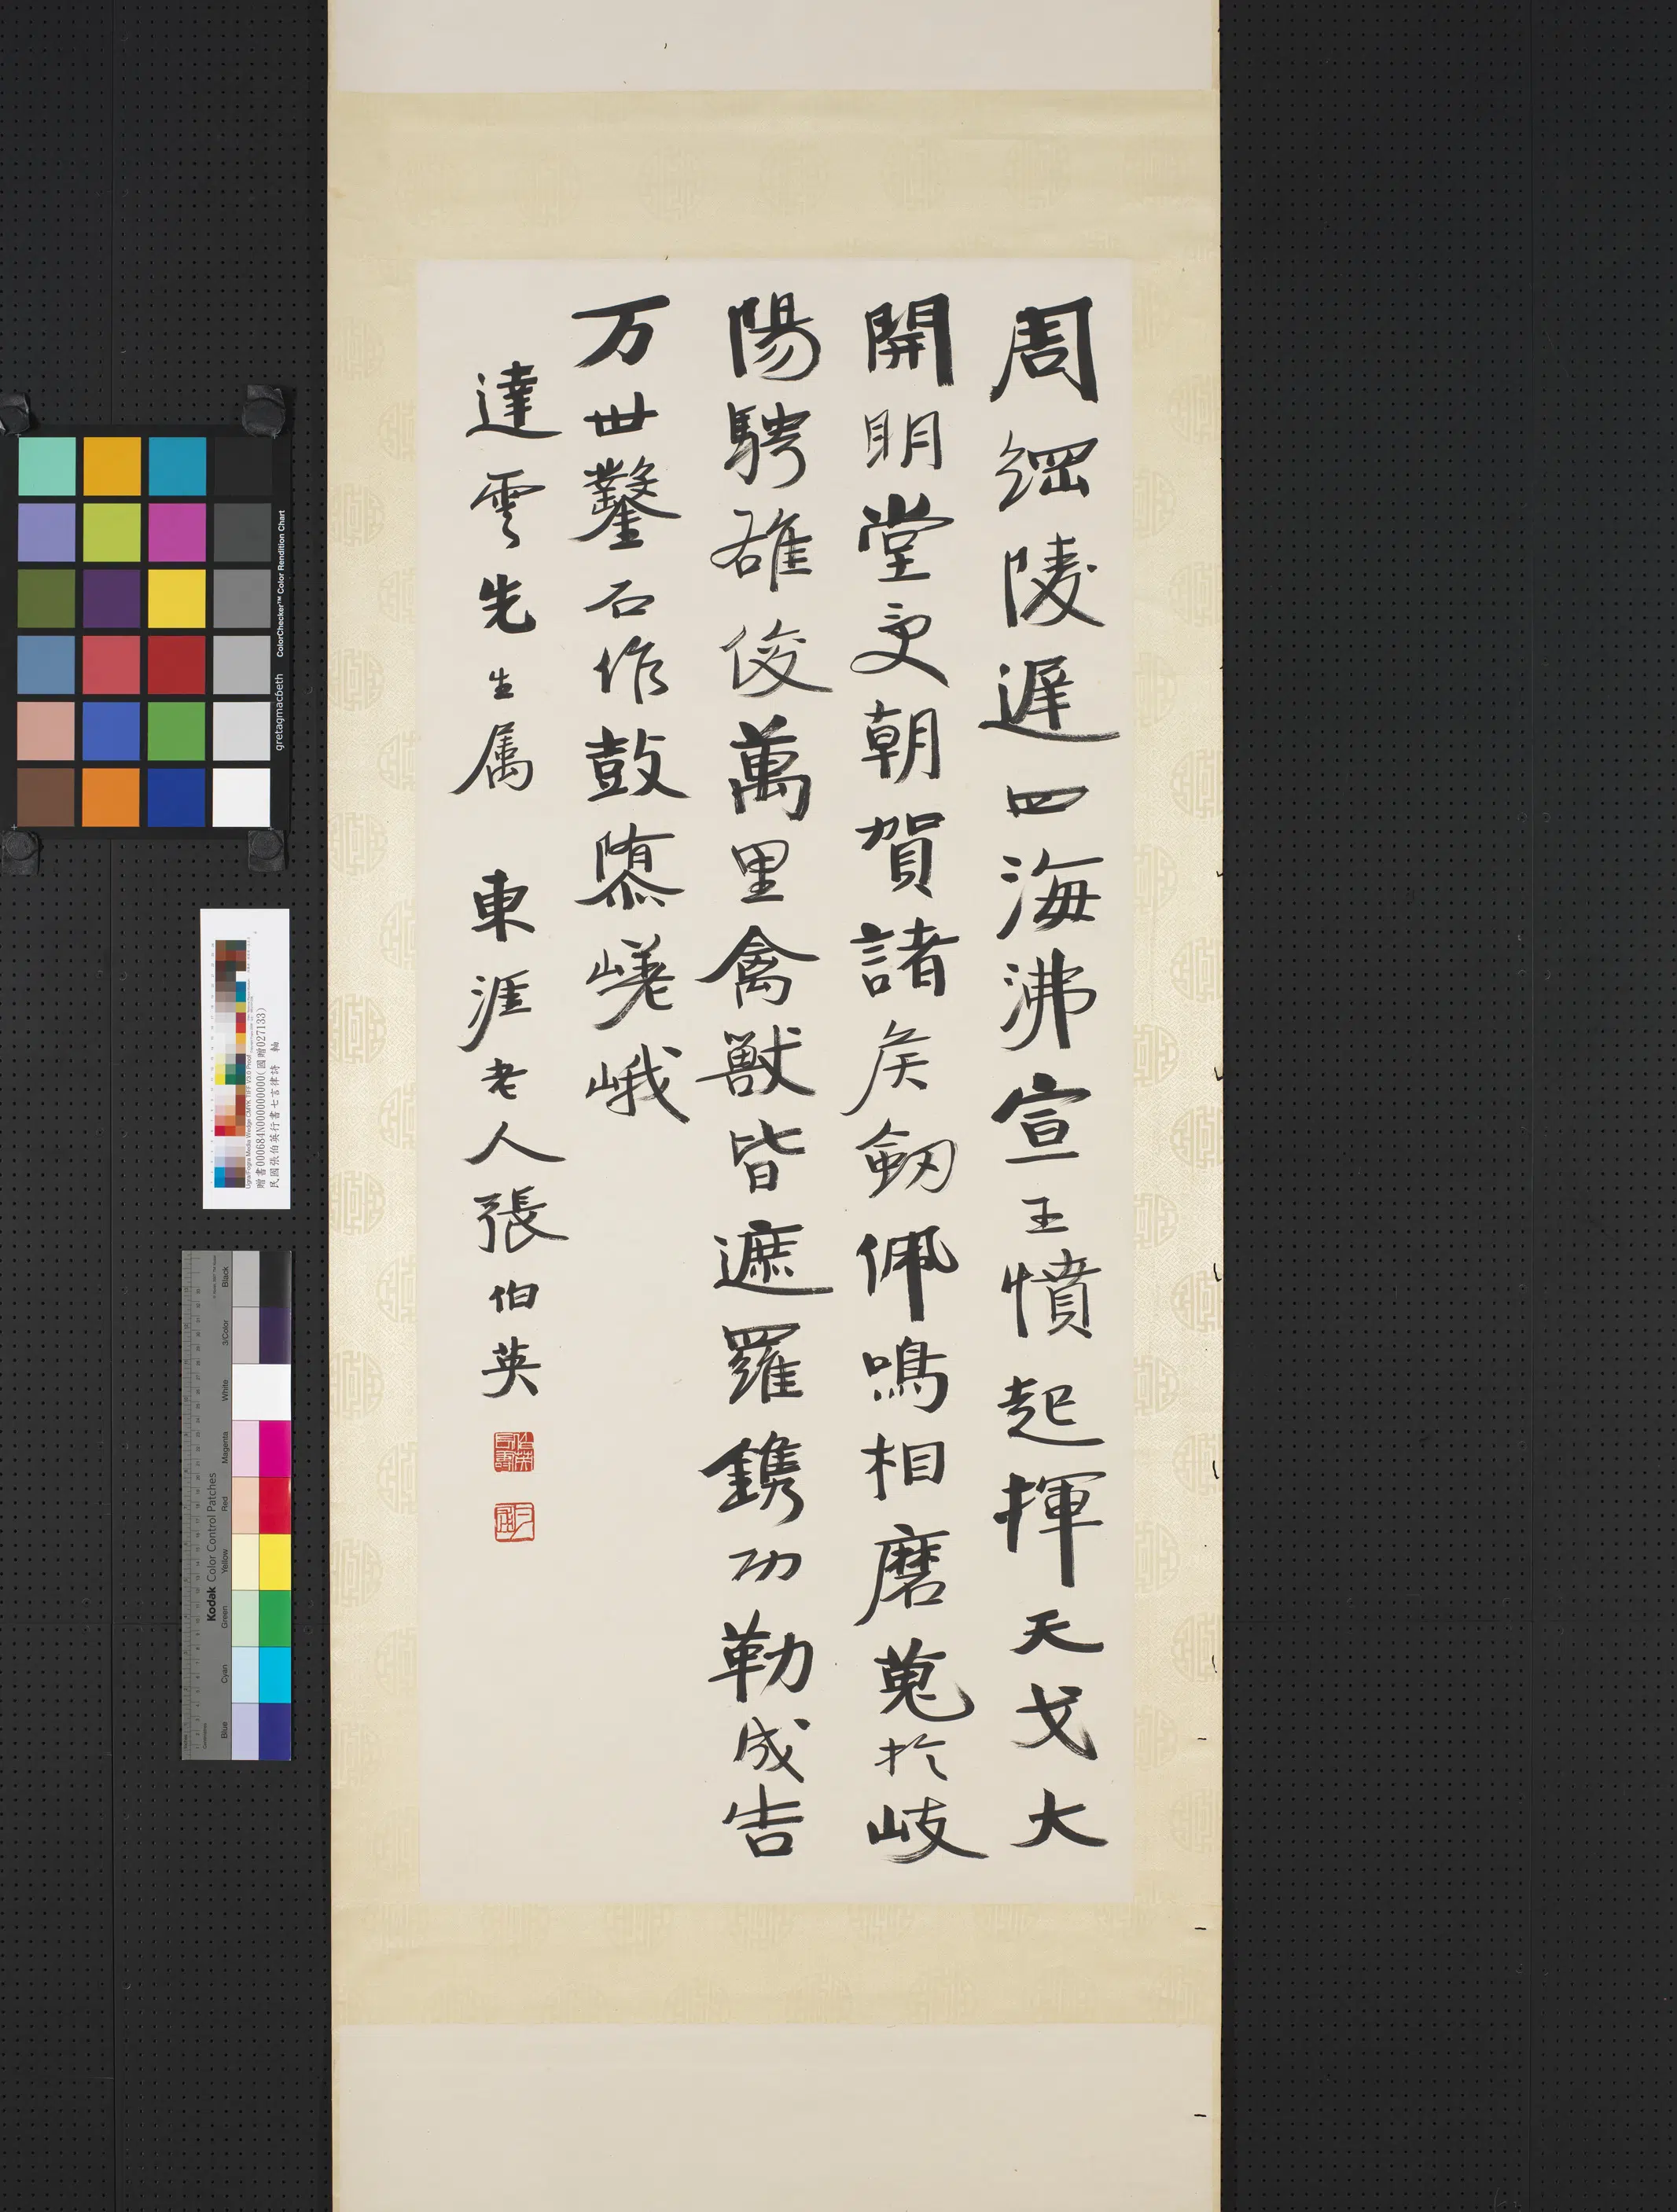 周綱陵遲四海沸宣王憤起揮天戈大
開明堂受朝賀諸侯劒佩鳴相磨蒐於岐
陽騁雄俊萬里禽獸皆遮羅鐫功勒成告
万世鑿石作鼓隳嵯峨
達雲先生属 東涯老人張伯英
ColorChecker™ Color Rendition Chart
gretagmacbeth
贈書000684N000000000(國贈027133)
民國張伯英行書七言律詩 軸
Kodak Color Control Patches
Blue Cyan Green Yellow Red Magenta White 3/Color Black